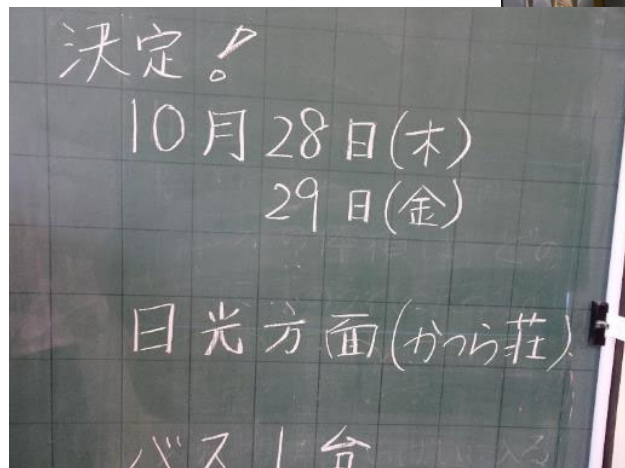 決定!
10月28日(木)
29日(金)
日光方面(かつら荘)
バス1台